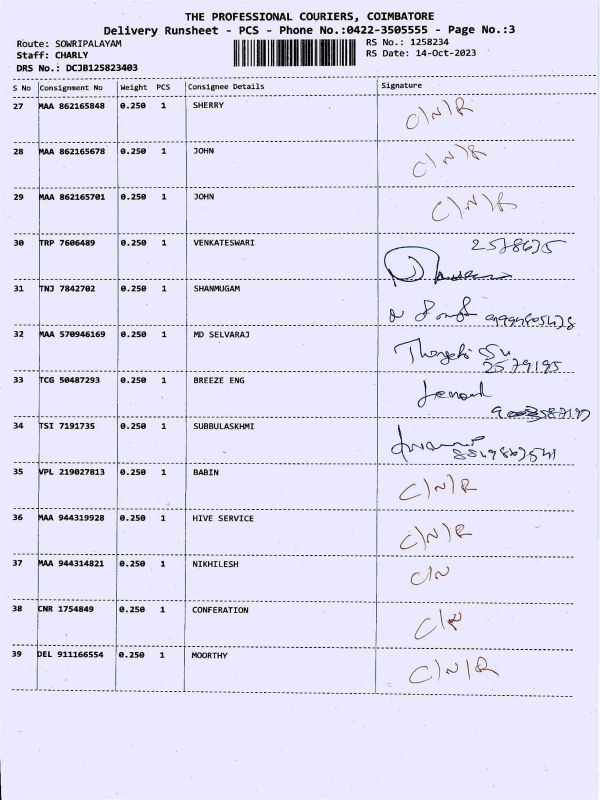 THE PROFESSIONAL COURIERS, COIMBATORE
Delivery Runsheet - PCS - Phone No.:0422-3505555 - Page No.:3
Route: SOWRIPALAYAM RS No.: 1258234
Staff: CHARLY RS Date: 14-Oct-2023
DRS No.: DCJB125823403
S No Consignment No Weight PCS Consignee Details Signature
27 MAA 862165848 0.250 1 SHERRY C/N/R
28 MAA 862165678 0.250 1 JOHN C/N/R
29 MAA 862165701 0.250 1 JOHN C/N/R
30 TRP 7606489 0.250 1 VENKATESWARI 2578635
31 TNJ 7842702 0.250 1 SHANMUGAM
32 MAA 570946169 0.250 1 MD SELVARAJ
2579195
33 TCG 50487293 0.250 1 BREEZE ENG
34 TSI 7191735 0.250 1 SUBBULASKHMI
35 VPL 219027813 0.250 1 BABIN C/N/R
36 MAA 944319928 0.250 1 HIVE SERVICE C/N/R
37 MAA 944314821 0.250 1 NIKHILESH C/N
38 CNR 1754849 0.250 1 CONFERATION
39 DEL 911166554 0.250 1 MOORTHY C/N/R